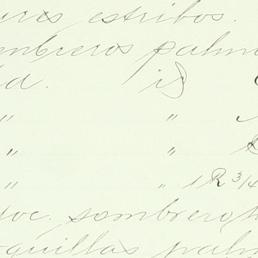 estribos.
mbreros palm
d. id
" "
" "
" " 1 R 3/4
oc. sombrero
quillas palm